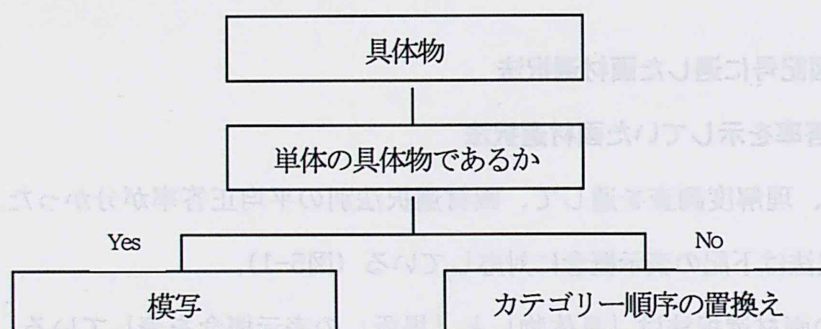 具体物
単体の具体物であるか
Yes
No
模写
カテゴリー順序の置換え